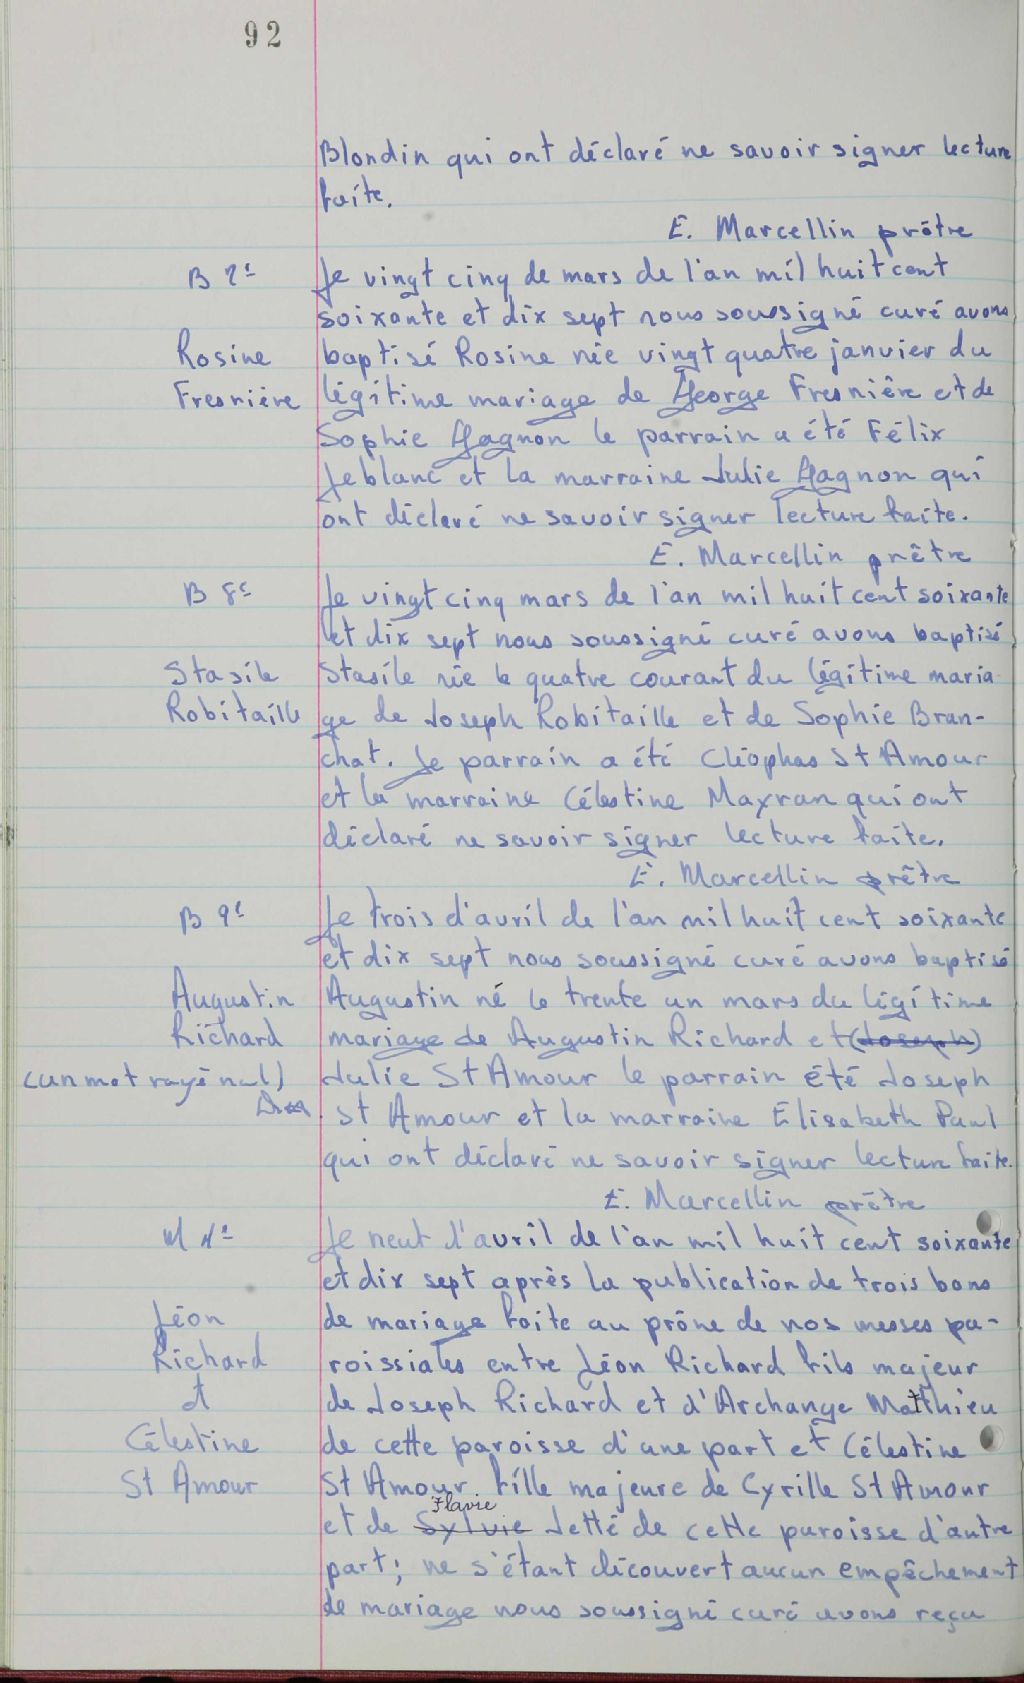 92
Blondin qui ont déclaré ne savoir signer lecture
faite.
E. Marcellin prêtre
B 7e
Le vingt cinq de mars de l'an mil huit cent
soixante et dix sept nous soussigné curé avons
Rosine
baptisé Rosine née vingt quatre janvier du
Fresnière
légitime mariage de George Fresnière et de
Sophie Gagnon le parrain a été Félix
Leblanc et la marraine Julie Gagnon qui
ont déclaré ne savoir signer lecture faite.
E. Marcellin prêtre
B 8e
Le vingt cinq mars de l'an mil huit cent soixante
et dix sept nous soussigné curé avons baptisé
Stasile
Stasile née le quatre courant du légitime maria-
Robitaille
ge de Joseph Robitaille et de Sophie Bran-
chat. Le parrain a été Cléophas St Amour
et la marraine Célestine Mayran qui ont
déclaré ne savoir signer lecture faite.
E. Marcellin prêtre
B 9e
Le trois d'avril de l'an mil huit cent soixante
et dix sept nous soussigné curé avons baptisé
Augustin
Augustin né le trente un mars du légitime
Richard
mariage de Augustin Richard et (Joseph)
(un mot rayé nul)
Julie St Amour le parrain été Joseph
St Amour et la marraine Elisabeth Paul
qui ont déclaré ne savoir signer lecture faite.
E. Marcellin prêtre
M 1e
Le neuf d'avril de l'an mil huit cent soixante
et dix sept après la publication de trois bans
Léon
de mariage faite au prône de nos messes pa-
Richard
roissiales entre Léon Richard fils majeur
et
de Joseph Richard et d'Archange Matthieu
Célestine
de cette paroisse d'une part et Célestine
St Amour
St Amour fille majeure de Cyrille St Amour
Flavie
et de Sylvie Jetté de cette paroisse d'autre
part; ne s'étant découvert aucun empêchement
de mariage nous soussigné curé avons reçu